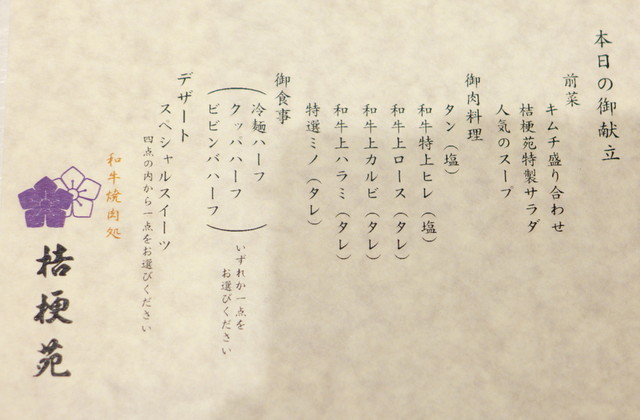 本日の御献立
前菜
キムチ盛り合わせ
桔梗苑特製サラダ
人気のスープ
御肉料理
タン(塩)
和牛特上ヒレ(塩)
和牛上ロース(タレ)
和牛上カルビ(タレ)
和牛上ハラミ(タレ)
特選ミノ(タレ)
御食事
冷麺ハーフ
クッパハーフ
ビビンバハーフ
いずれか一点を
お選びください
デザート
スペシャルスイーツ
四点の内から一点をお選びください
和牛焼肉処
桔梗苑